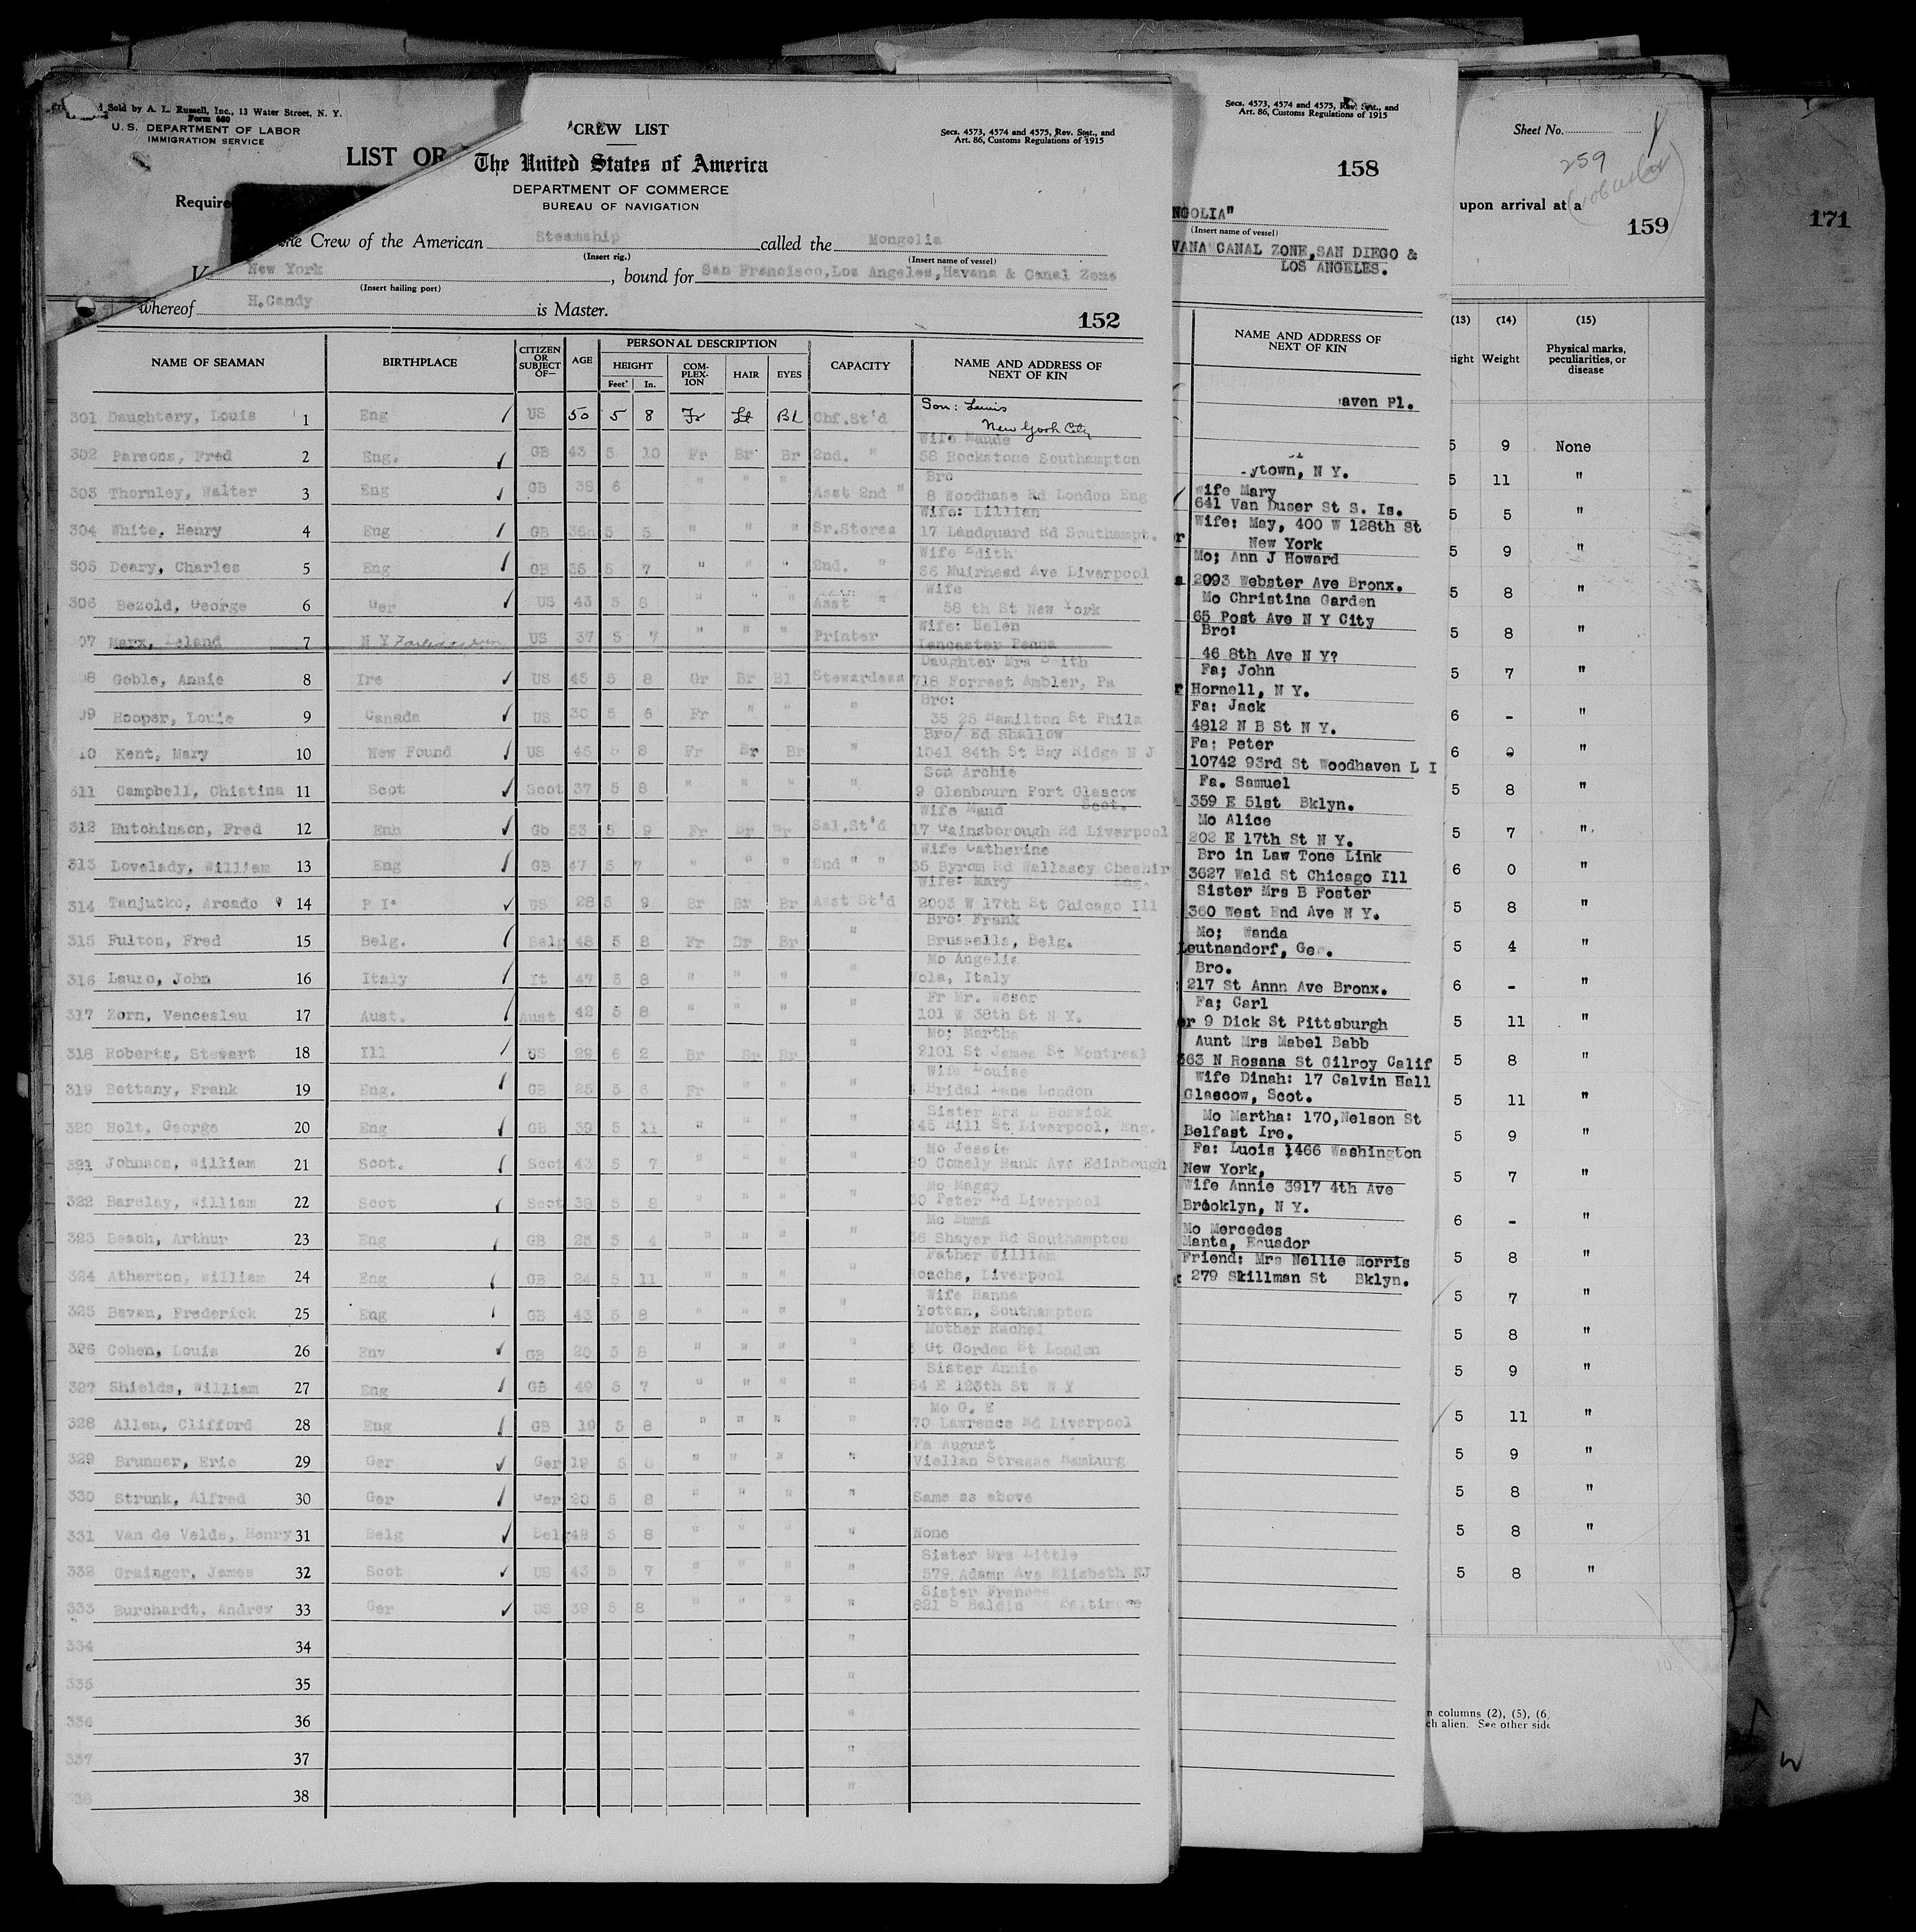 d Sold by A. L. Russell, Inc., 13 Water Street, N. Y.
Form 680
U. S. DEPARTMENT OF LABOR
IMMIGRATION SERVICE
LIST OR
Require
CREW LIST
Secs. 4573, 4574 and 4575, Rev. Stat., and
Art. 86, Customs Regulations of 1915
The United States of America
DEPARTMENT OF COMMERCE
BUREAU OF NAVIGATION
the Crew of the American Steamship called the Mongolia
(Insert rig.) (Insert name of vessel)
V New York, bound for San Francisco, Los Angeles, Havana & Canal Zone
(Insert hailing port)
whereof H. Candy is Master.
152
NAME OF SEAMAN BIRTHPLACE CITIZEN OR SUBJECT OF— AGE PERSONAL DESCRIPTION CAPACITY NAME AND ADDRESS OF NEXT OF KIN
HEIGHT COM-PLEX-ION HAIR EYES
Feet In.
301 Daughtery, Louis 1 Eng US 50 5 8 Fr Lt BL Chf.St'd Son: Lewis
New York City
302 Parsons, Fred 2 Eng. GB 43 5 10 Fr Br Br 2nd. " Wife Maude
58 Rockstone Southampton
303 Thornley, Walter 3 Eng GB 39 6 " " " Asst 2nd " Bro
8 Woodhase Rd London Eng
304 White, Henry 4 Eng GB 36 5 5 " " " Sr.Stores Wife: Lillian
17 Landguard Rd Southampt.
305 Deary, Charles 5 Eng GB 35 5 7 " " " 2nd. " Wife Edith
66 Muirhead Ave Liverpool
306 Bezold, George 6 Ger US 43 5 8 " " " Asst " Wife
58 th St New York
07 Marx, Leland 7 N Y US 37 5 7 " " " Printer Wife: Helen
Lancaster Penna
08 Goble, Annie 8 Ire US 45 5 8 Gr Br Bl Stewardess Daughter Mrs Smith
718 Forrest Ambler, Pa
09 Hooper, Louie 9 Canada US 30 5 6 Fr " " " Bro:
35 25 Hamilton St Phila
10 Kent, Mary 10 New Found US 45 5 8 Fr Br Br " Bro/ Ed Shallow
1041 84th St Bay Ridge N J
311 Campbell, Chistina 11 Scot Scot 37 5 8 " " " " Son Archie
9 Glenbourn Port Glascow
Scot.
312 Hutchinson, Fred 12 Enh Gb 53 5 9 Fr Br Br Sal.St'd Wife Maud
17 Gainsborough Rd Liverpool
313 Lovelady, William 13 Eng GB 47 5 7 " " " 2nd " " Wife Catherine
35 Byrom Rd Wallasey Cheshir
Eng.
314 Tanjutko, Arcado 14 P I. US 28 5 9 Br Br Br Asst St'd Wife: Mary
2003 W 17th St Chicago Ill
315 Fulton, Fred 15 Belg. Belg 48 5 8 Fr Br Br " Bro: Frank
Brussells, Belg.
316 Lauro, John 16 Italy It 47 5 8 " " " " Mo Angelia
Nola, Italy
317 Zorn, Venceslau 17 Aust. Aust 42 5 8 " " " " Fr Mr. Weser
101 W 38th St N Y.
318 Roberts, Stewart 18 Ill US 29 6 2 Br Br Br " Mo; Martha
2101 St James St Montreal
319 Bettany, Frank 19 Eng. GB 25 5 6 Fr " " " Wife Louise
Bridal Lane London
320 Holt, George 20 Eng GB 39 5 11 " " " " Sister Mrs L Boswick
145 Hill St Liverpool, Eng.
321 Johnson, William 21 Scot. Scot 43 5 7 " " " " Mo Jessie
80 Comely Bank Ave Edinbough
322 Barclay, William 22 Scot Scot 39 5 8 " " " " Mo Maggy
30 Peter Rd Liverpool
323 Beach, Arthur 23 Eng GB 25 5 4 " " " " Mo Emma
36 Shayer Rd Southampton
324 Atherton, William 24 Eng GB 24 5 11 " " " " Father William
Roache, Liverpool
325 Bevan, Frederick 25 Eng GB 43 5 8 " " " " Wife Hanna
Tottan, Southampton
326 Cohen, Louis 26 Env GB 20 5 8 " " " " Mother Rachel
Gt Gorden St London
327 Shields, William 27 Eng GB 49 5 7 " " " " Sister Annie
54 E 126th St N Y
328 Allen, Clifford 28 Eng GB 19 5 8 " " " " Mo G. E
70 Lawrence Rd Liverpool
329 Brunner, Eric 29 Ger Ger 19 5 8 " " " " Fa August
Viellan Strasse Hamburg
330 Strunk, Alfred 30 Ger Ger 20 5 8 " " " " Same as above
331 Van de Velde, Henry 31 Belg Belg 49 5 8 " " " " None
332 Grainger, James 32 Scot US 43 5 7 " " " " Sister Mrs Little
579 Adams Ave Elizbeth NJ
333 Burchardt, Andrew 33 Ger US 39 5 8 " " " " Sister Frances
821 S Baldin Baltimore
334 34 "
335 35 "
336 36 "
337 37 "
38 38 "
Secs. 4573, 4574 and 4575, Rev. Stat., and
Art. 86, Customs Regulations of 1915
158
NGOLIA"
(Insert name of vessel)
VANA CANAL ZONE, SAN DIEGO &
LOS ANGELES.
NAME AND ADDRESS OF
NEXT OF KIN
aven Pl.
ytown, N Y.
Wife Mary
641 Van Duser St S. Is.
Wife: May, 400 W 128th St
New York
Mo; Ann J Howard
2093 Webster Ave Bronx.
Mo Christina Garden
65 Post Ave N Y City
Bro:
46 8th Ave N Y?
Fa; John
Hornell, N Y.
Fa; Jack
4812 N B St N Y.
Fa; Peter
10742 93rd St Woodhaven L I
Fa. Samuel
359 E 51st Bklyn.
Mo Alice
202 E 17th St N Y.
Bro in Law Tone Link
3627 Wald St Chicago Ill
Sister Mrs B Foster
360 West End Ave N Y.
Mo; Wanda
Leutnandorf, Ge .
Bro.
217 St Annn Ave Bronx.
Fa; Carl
er 9 Dick St Pittsburgh
Aunt Mrs Mabel Babb
363 N Rosana St Gilroy Calif
Wife Dinah: 17 Calvin Hall
Glascow, Scot.
Mo Martha: 170,Nelson St
Belfast Ire.
Fa: Luois 1466 Washington
New York,
Wife Annie 3917 4th Ave
Brooklyn, N Y.
Mo Mercedes
Manta, Ecuador
Friend: Mrs Nellie Morris
279 Skillman St Bklyn.
Sheet No.
259
upon arrival at a
159
(13) (14) (15)
eight Weight Physical marks, peculiarities, or disease
5 9 None
5 11 "
5 5 "
5 9 "
5 8 "
5 8 "
5 7 "
6 - "
6 0 "
5 8 "
5 7 "
6 0 "
5 8 "
5 4 "
6 - "
5 11 "
5 8 "
5 11 "
5 9 "
5 7 "
6 - "
5 8 "
5 7 "
5 8 "
5 9 "
5 11 "
5 9 "
5 8 "
5 8 "
5 8 "
n columns (2), (5), (6,
ch alien. See other side
171